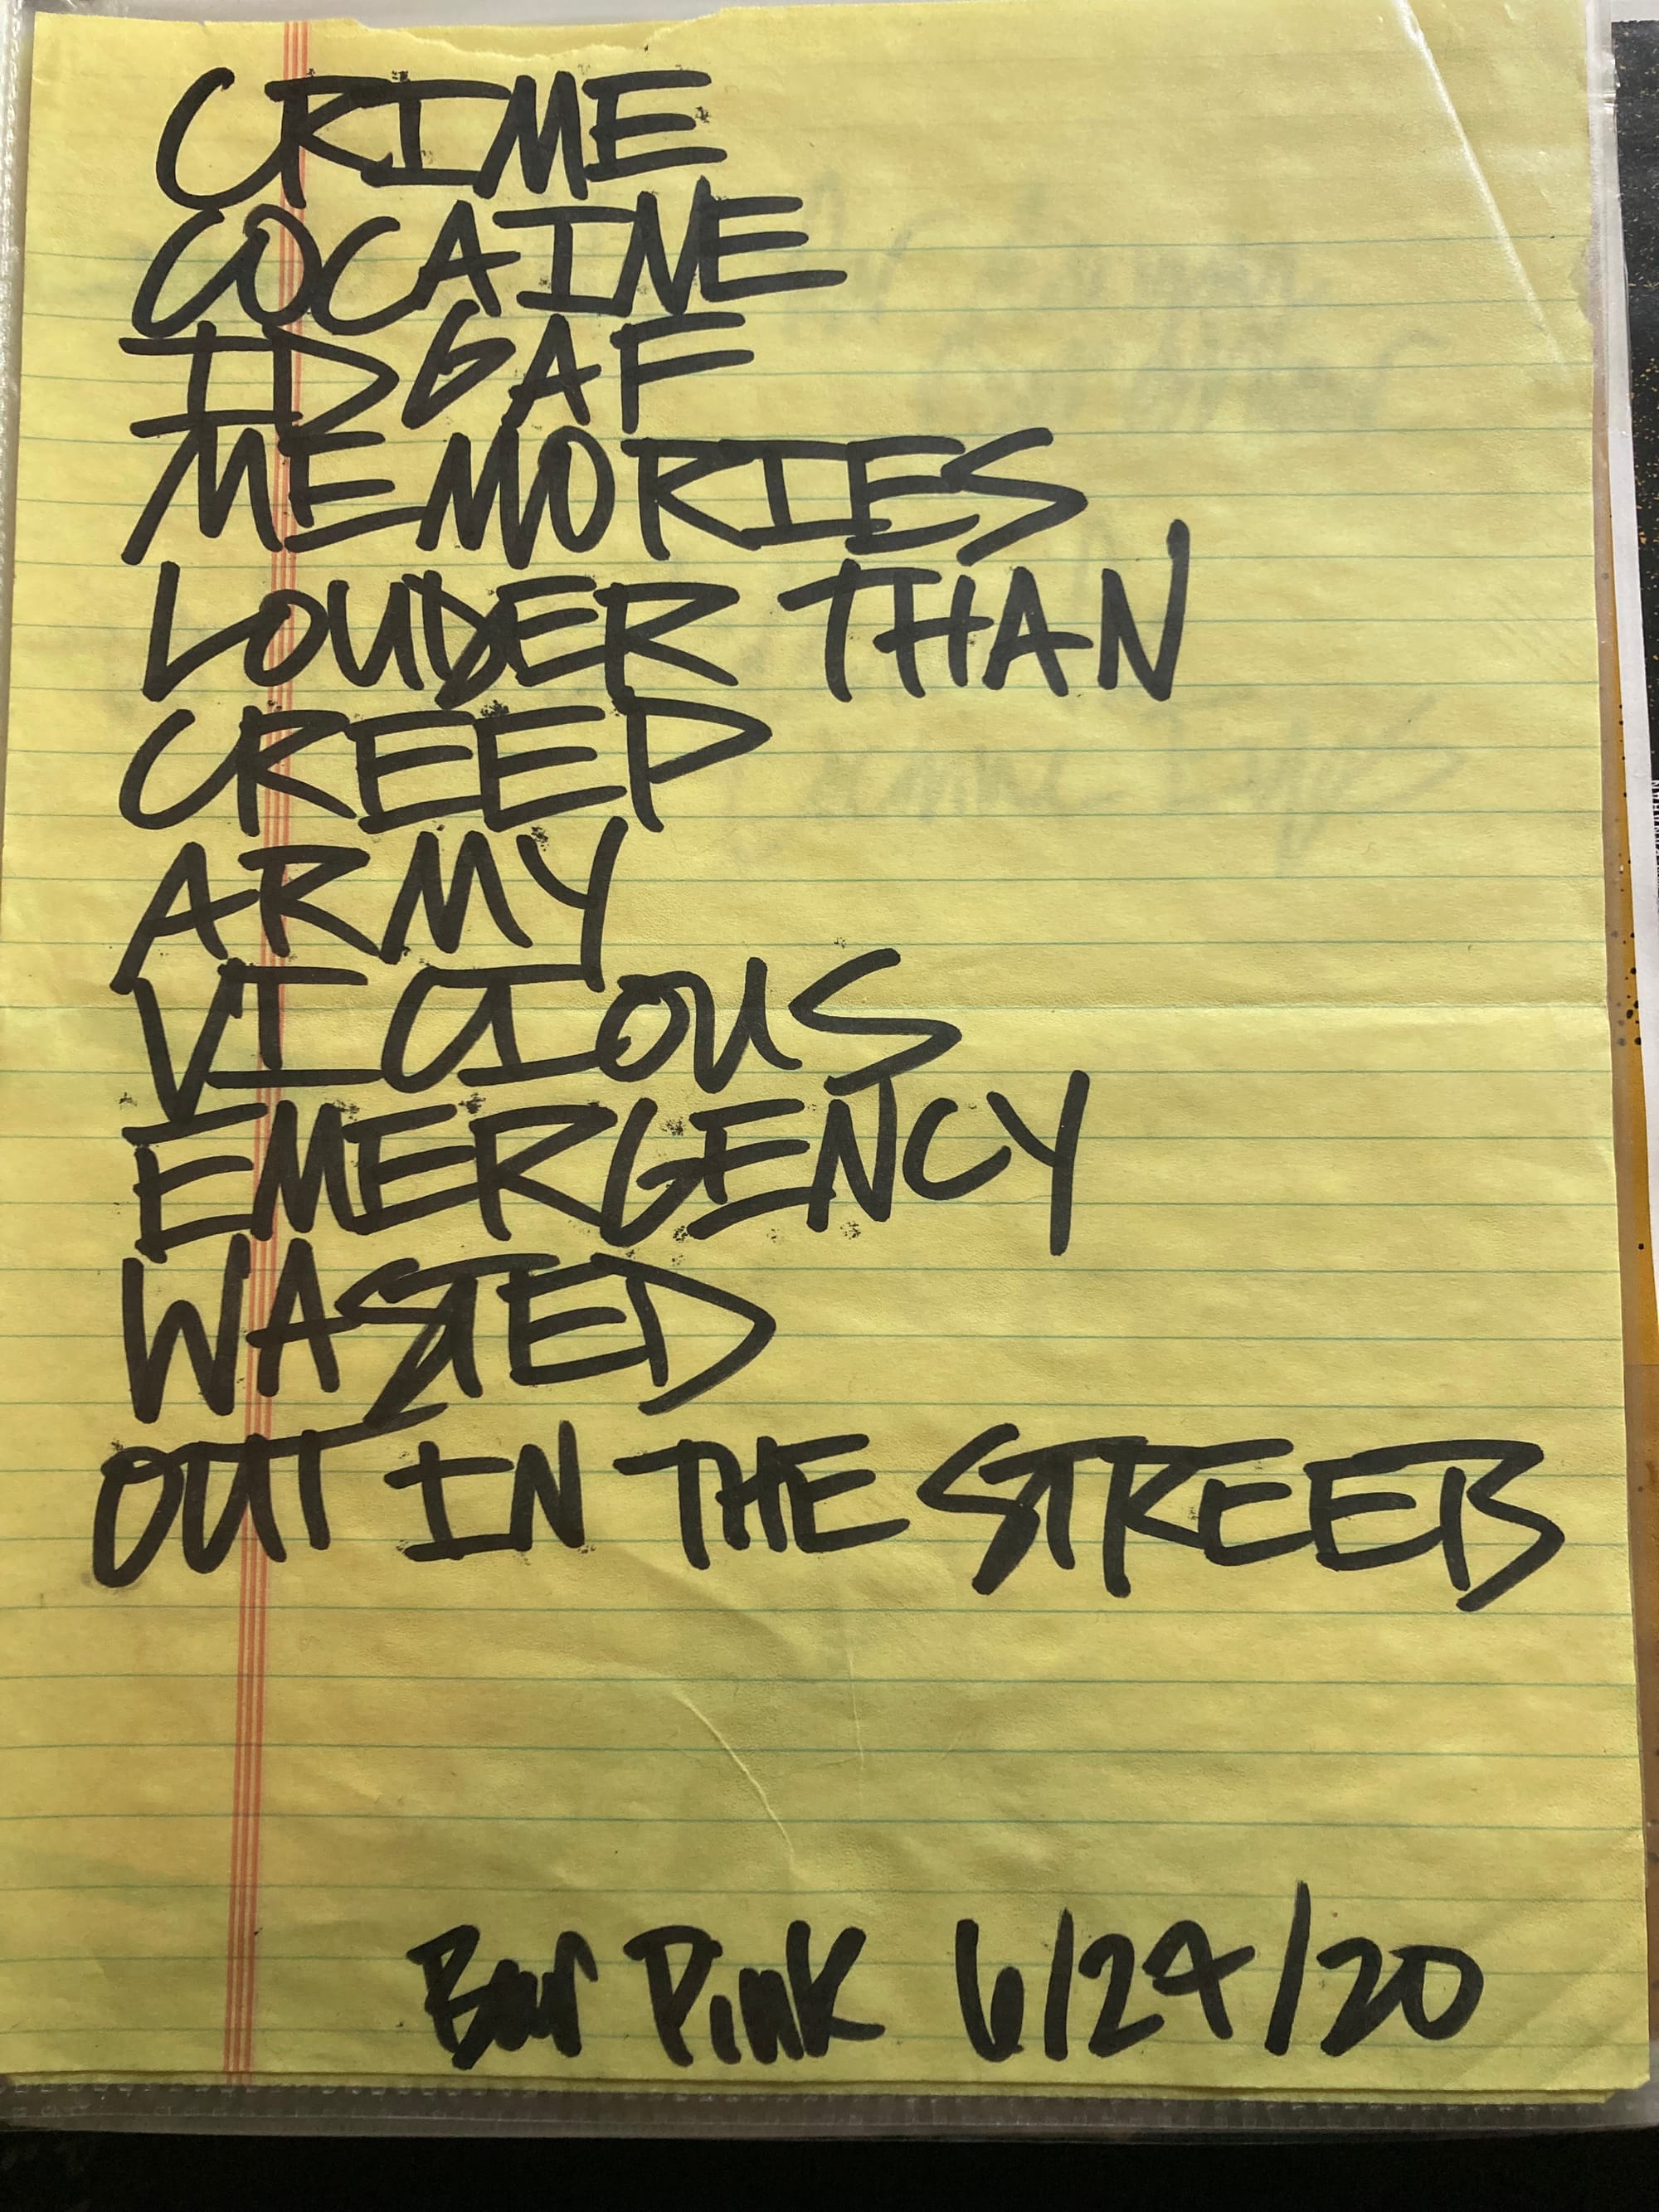 CRIME
COCAINE
IDGAF
MEMORIES
LOUDER THAN
CREEP
ARMY
VICIOUS
EMERGENCY
WASTED
OUT IN THE STREETS
Bar Pink 6/24/20